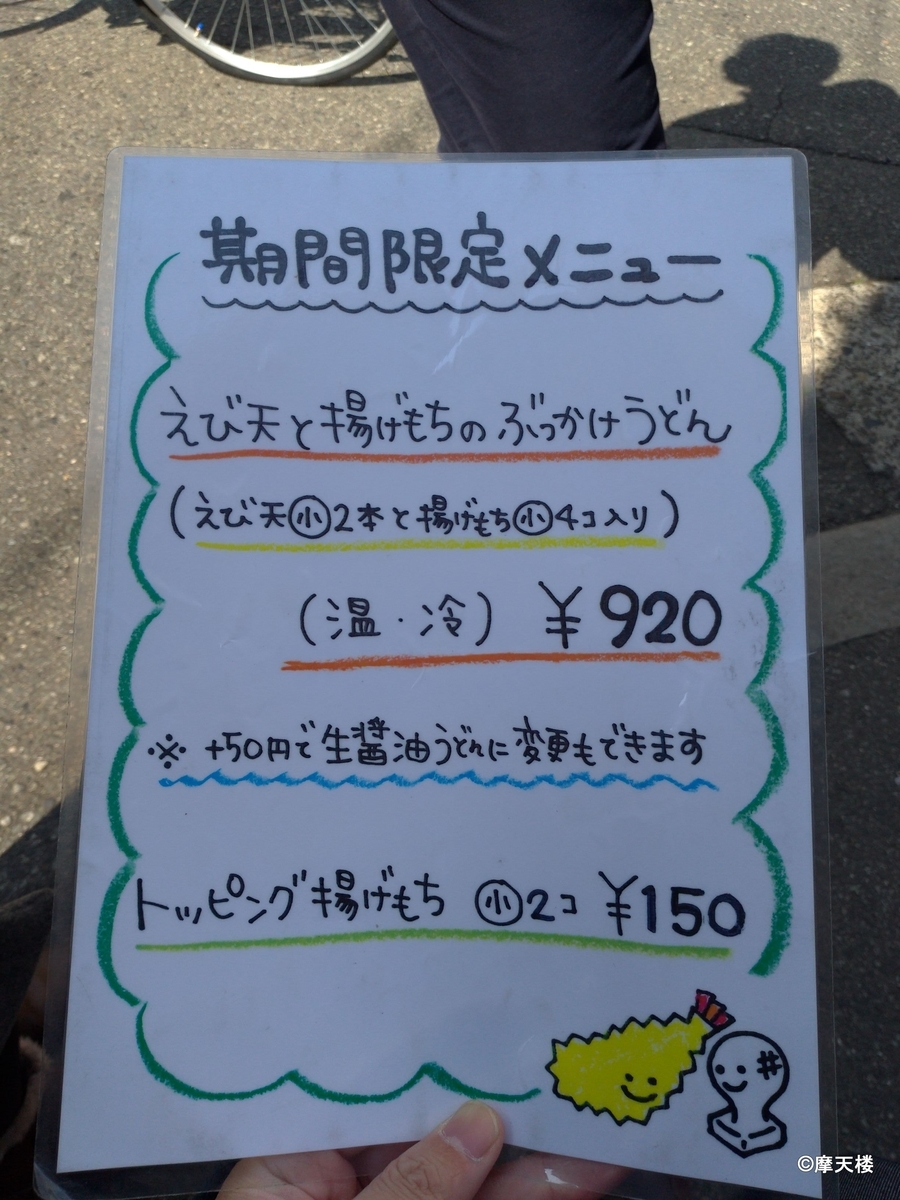 期間限定メニュー
えび天と揚げもちのぶっかけうどん
(えび天㊙小2本と揚げもち小4コ入り)
(温・冷) ¥920
※ +50円で生醤油うどんに変更もできます
トッピング揚げもち 小2コ ¥150
©摩天楼